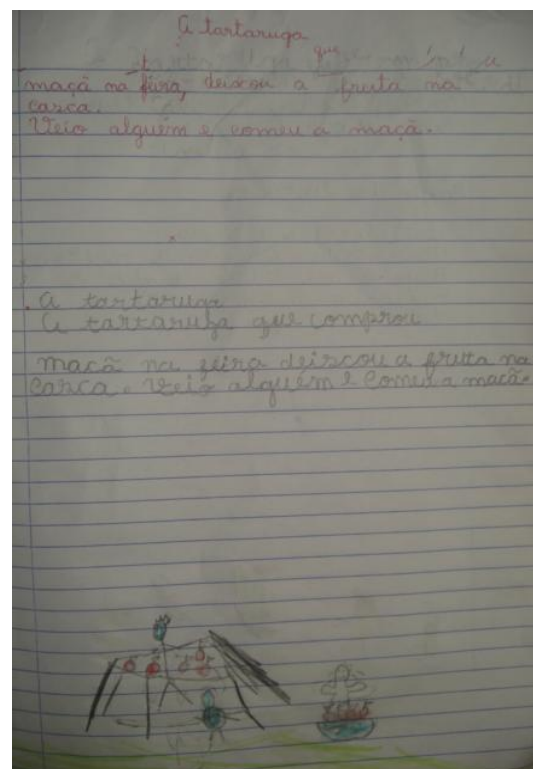 A tartaruga
que
maçã na feira, deixcou a fruta na
casca.
Veio alguém e comeu a maçã.
A tartaruga
A tartaruga que comprou
maçã na feira deixcou a fruta na
casca. Veio alguém e comeu a maçã.